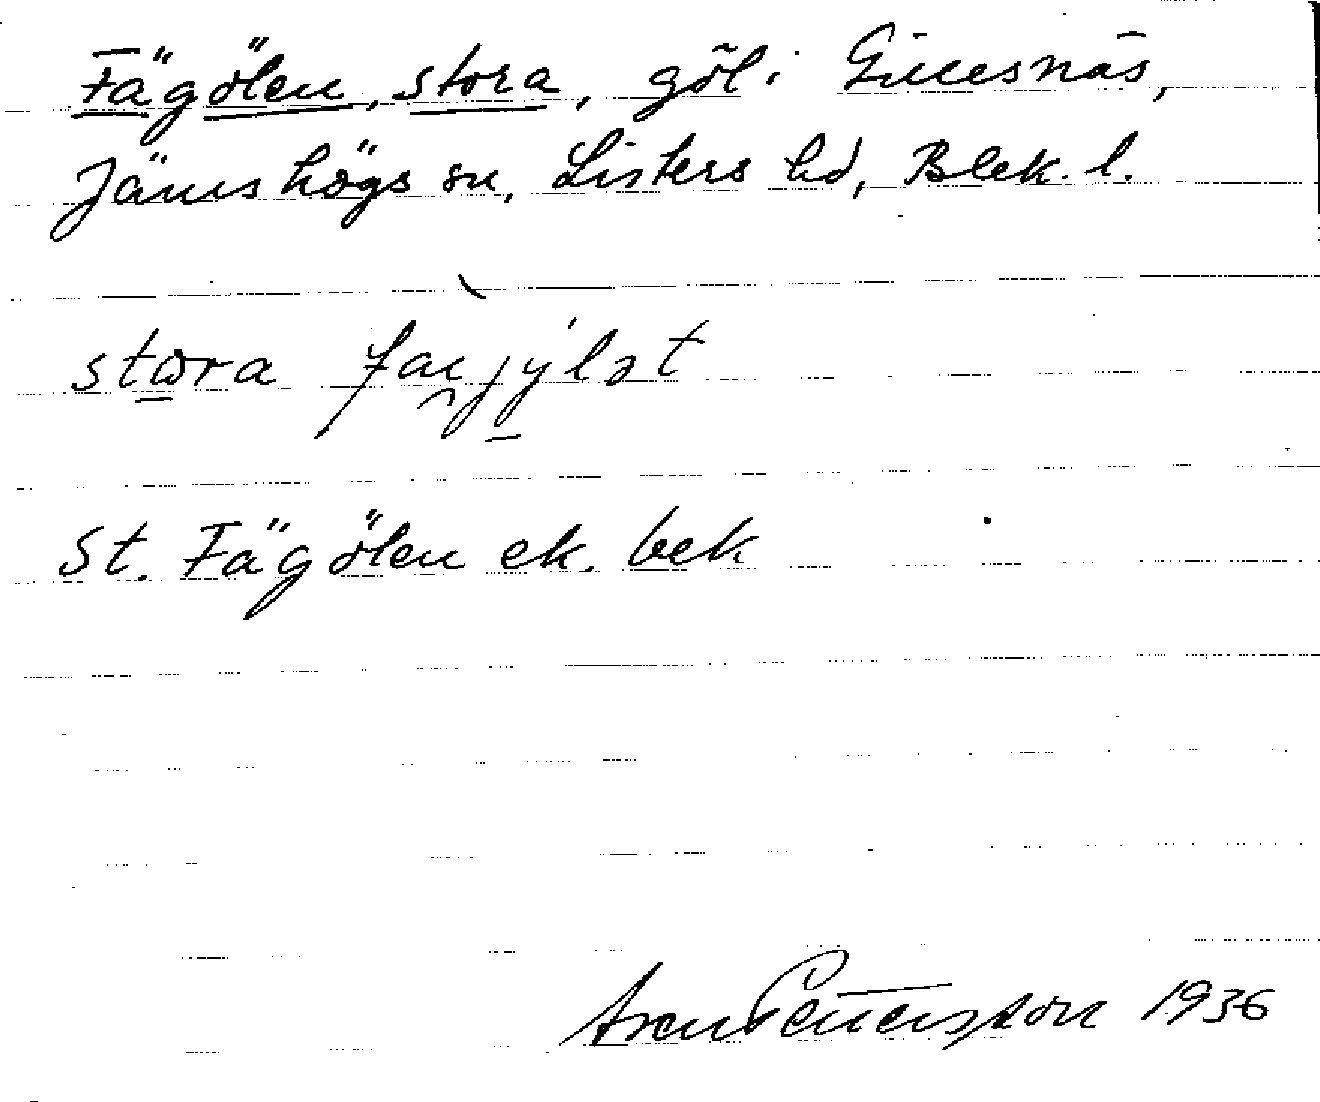 Fägölen, stora, göl i Grimesnäs,
Jämshögs sn, Listers hd, Blek. l.
stora
St. Fägölen ek. bek
Pettersson 1936